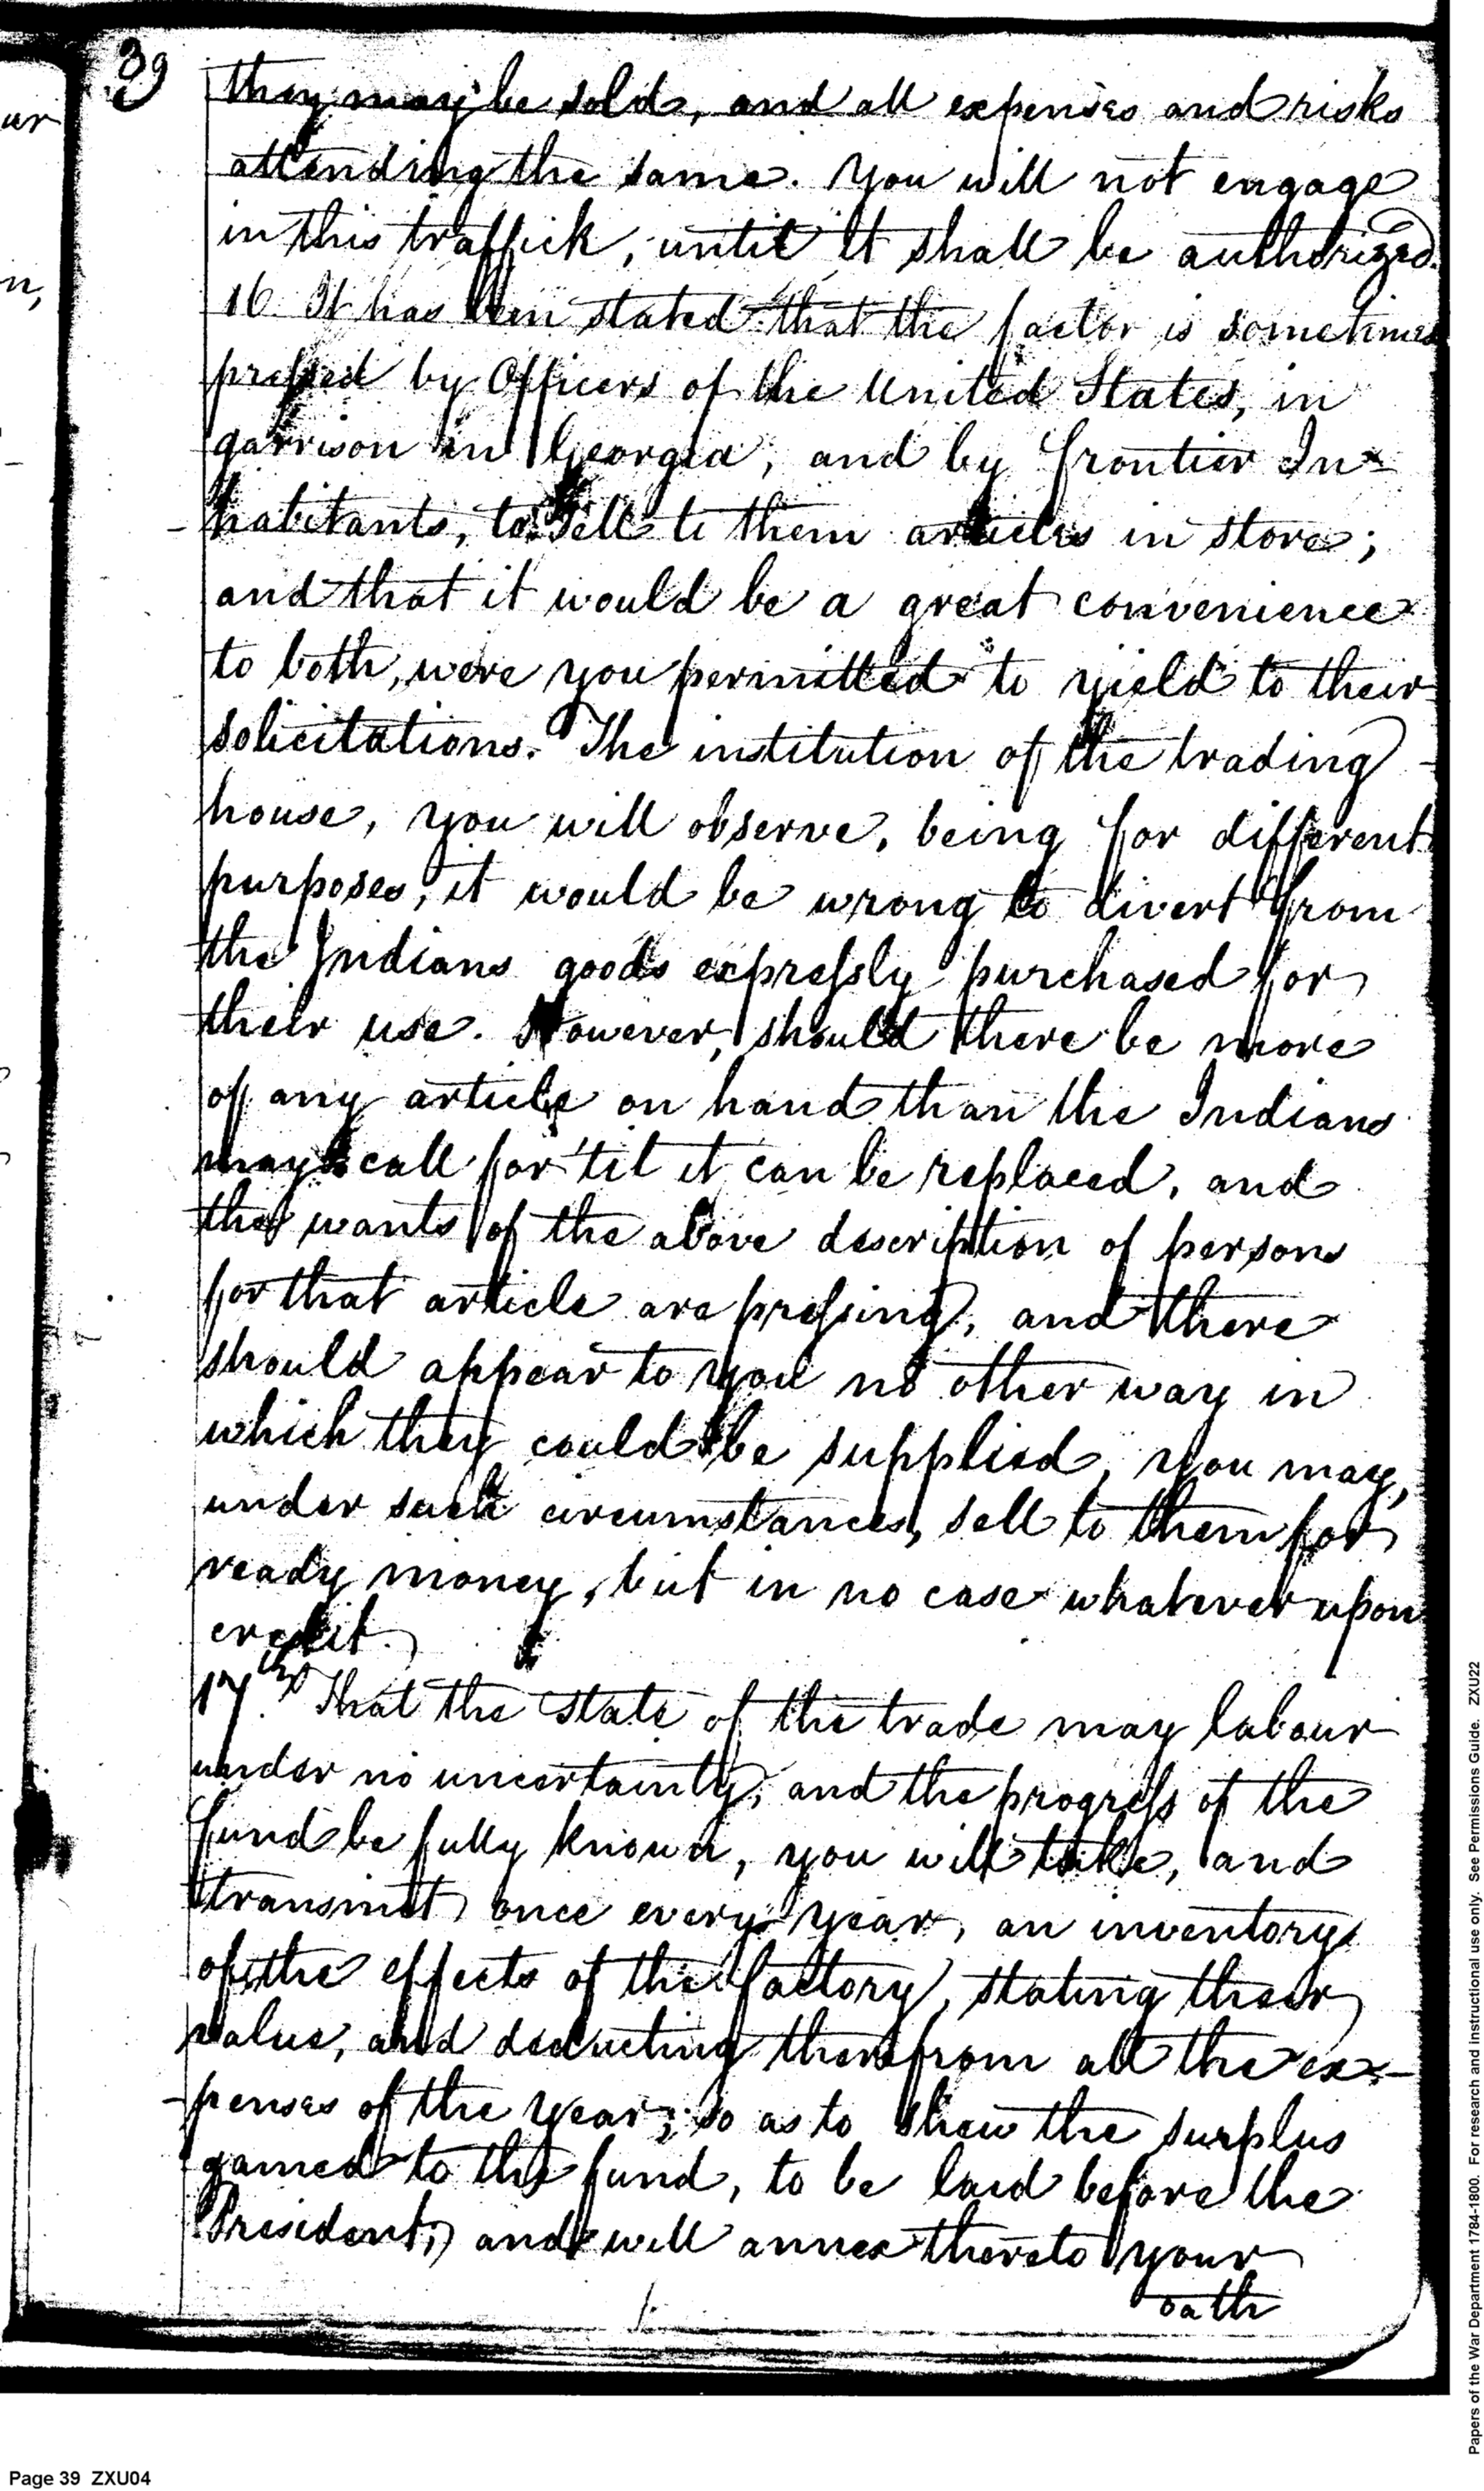 39
they may be sold, and all expenses and risks
attending the same. You will not engage
in this traffick, until it shall be authorized.
16. It has been stated that the factor is sometimes
pressed by Officers of the United States, in
garrison in Georgia, and by frontier In=
-habitants, to sell to them articles in store;
and that it would be a great convenience
to both, were you permitted to yield to their
solicitations. The institution of the trading
house, you will observe, being for different
purposes, it would be wrong to divert from
the Indians goods expressly purchased for
their use. However, should there be more
of any article on hand than the Indians
may call for 'til it can be replaced, and
the wants of the above description of persons
for that article are pressing, and there
should appear to you no other way in
which they could be supplied, you may,
under such circumstances, sell to them for
ready money, but in no case whatever upon
credit.
17th. That the state of the trade may labour
under no uncertainty, and the progress of the
fund be fully known, you will take, and
transmit once every year, an inventory
of the effects of the factory, stating their
value, and deducting therefrom all the ex-
-penses of the year; so as to shew the surplus
gained to the fund, to be laid before the
President; and will annex thereto your
oath
ur
n,
Papers of the War Department 1784-1800. For research and instructional use only. See Permissions Guide. ZXU22
Page 39 ZXU04